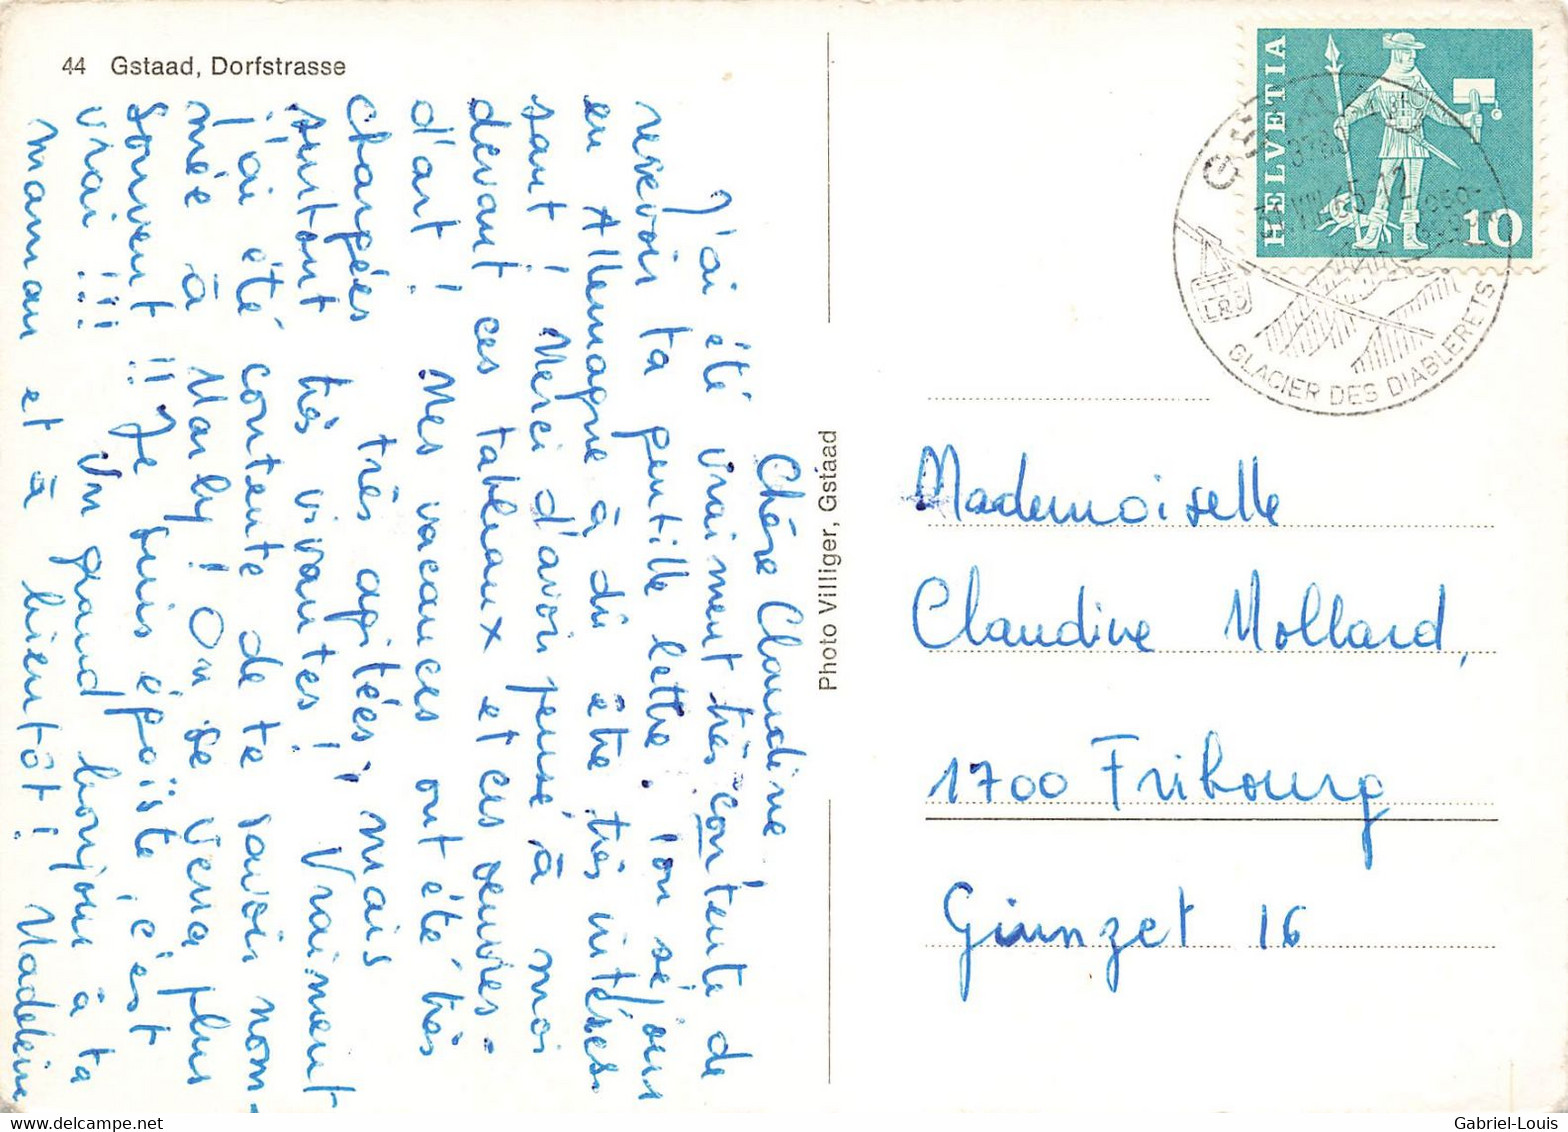 44 Gstaad, Dorfstrasse
Chère Claudine
J'ai été vraiment très contente de
revevoir ta gentille lettre. Ton séjour
en Allemagne à dû être très intéres-
sant ! Merci d'avoir pensé à moi
devant ces tableaux et ces oeuvres
d'art ! Mes vacances ont été très
chargées très agitées, mais
surtout très vivantes ! Vraiment
j'ai été contente de te savoir nom-
mée à Marly ! On se verra plus
souvent !! Je suis égoïste, c'est
vrai !!! Un grand bonjour à ta
maman et à bientôt ! Madeleine
Photo Villiger, Gstaad
HELVETIA
10
GLACIER DES DIABLERETS
Mademoiselle
Claudine Mollard,
1700 Fribourg
Guinzet 16
Gabriel-Louis